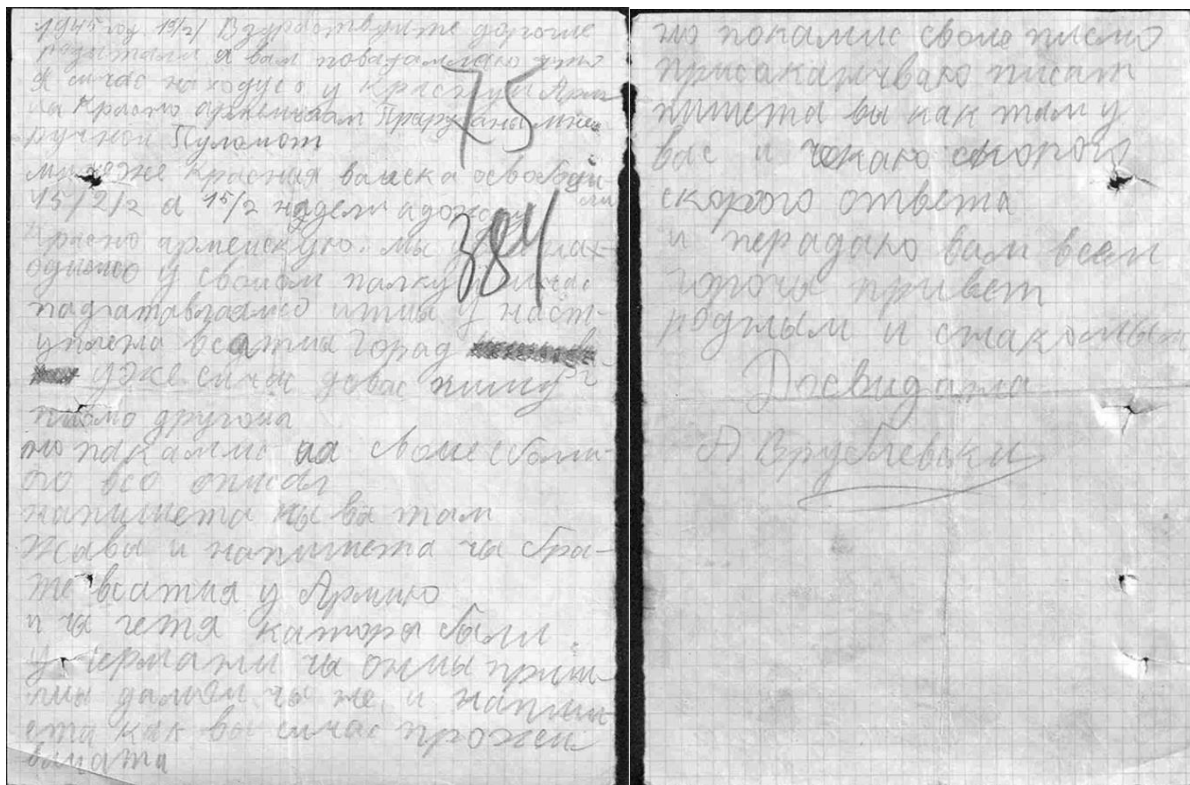 1945 год 15/2/ Вздраствуите дорогие
родители Я вам поведамлаю что
Я сичас находусо у красnuй Арм
ручной Пуломот
мы уже красная ваиска освободи
15/2/2 а 15/2 надели адожду ли
красно армейскую. мы
одимсо у своиом палку сичас
падгатавлаемсо итины у наст-
уплено всатия Город
уже сичас до вас пишу
писмо другона
но пакамис аа своие было
то всо описал
напишета вы там
жывы и напишета чы бра-
те всатия у Армию
и ча гетя каторы были
у германи чы оны приш
лиы дамои чы не и напиш
ета как вы сичас прожеи
ваиата
75
384
но покамис своие писмо
присаканчываю писат
пишета вы как там у
вас и чекаю скорого
скорого ответа
и перадаю вам всем
горочы привет
родным и знакомым
Досвидана
А Врублевски